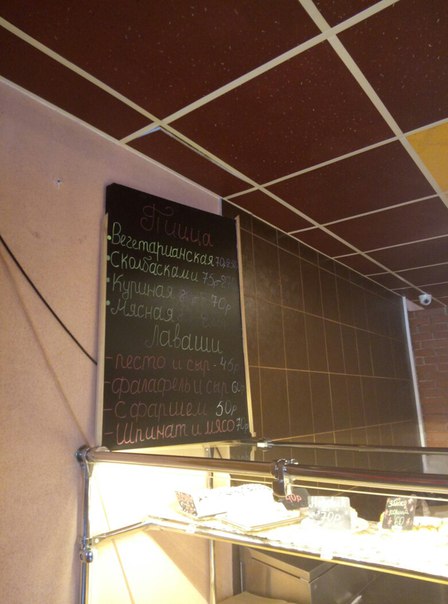 Пицца
Вегетарианская
С колбасками 75
Куриная 70р
Мясная
Лаваши
- песто и сыр - 45р
- фалафель и сыр
- С фаршем 50р
- Шпинат и мясо 70р